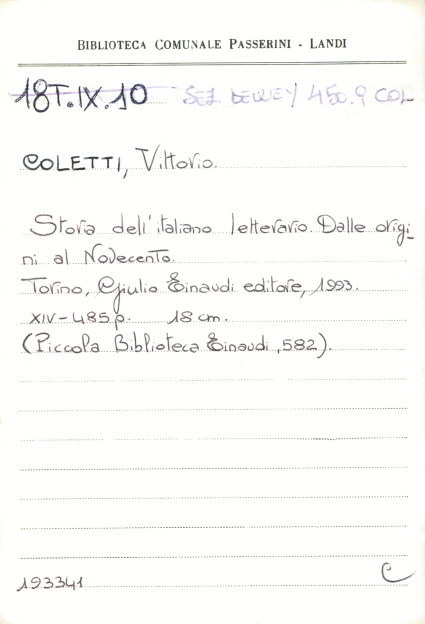 BIBLIOTECA COMUNALE PASSERINI - LANDI
18T.IX.10 SEZ. DEWEY 450.9 COL
COLETTI, Vittorio.
Storia dell'italiano letterario. Dalle origi_
ni al Novecento.
Torino, Giulio Einaudi editore, 1993.
XIV-485 p. 18 cm.
(Piccola Biblioteca Einaudi, 582).
193341 C